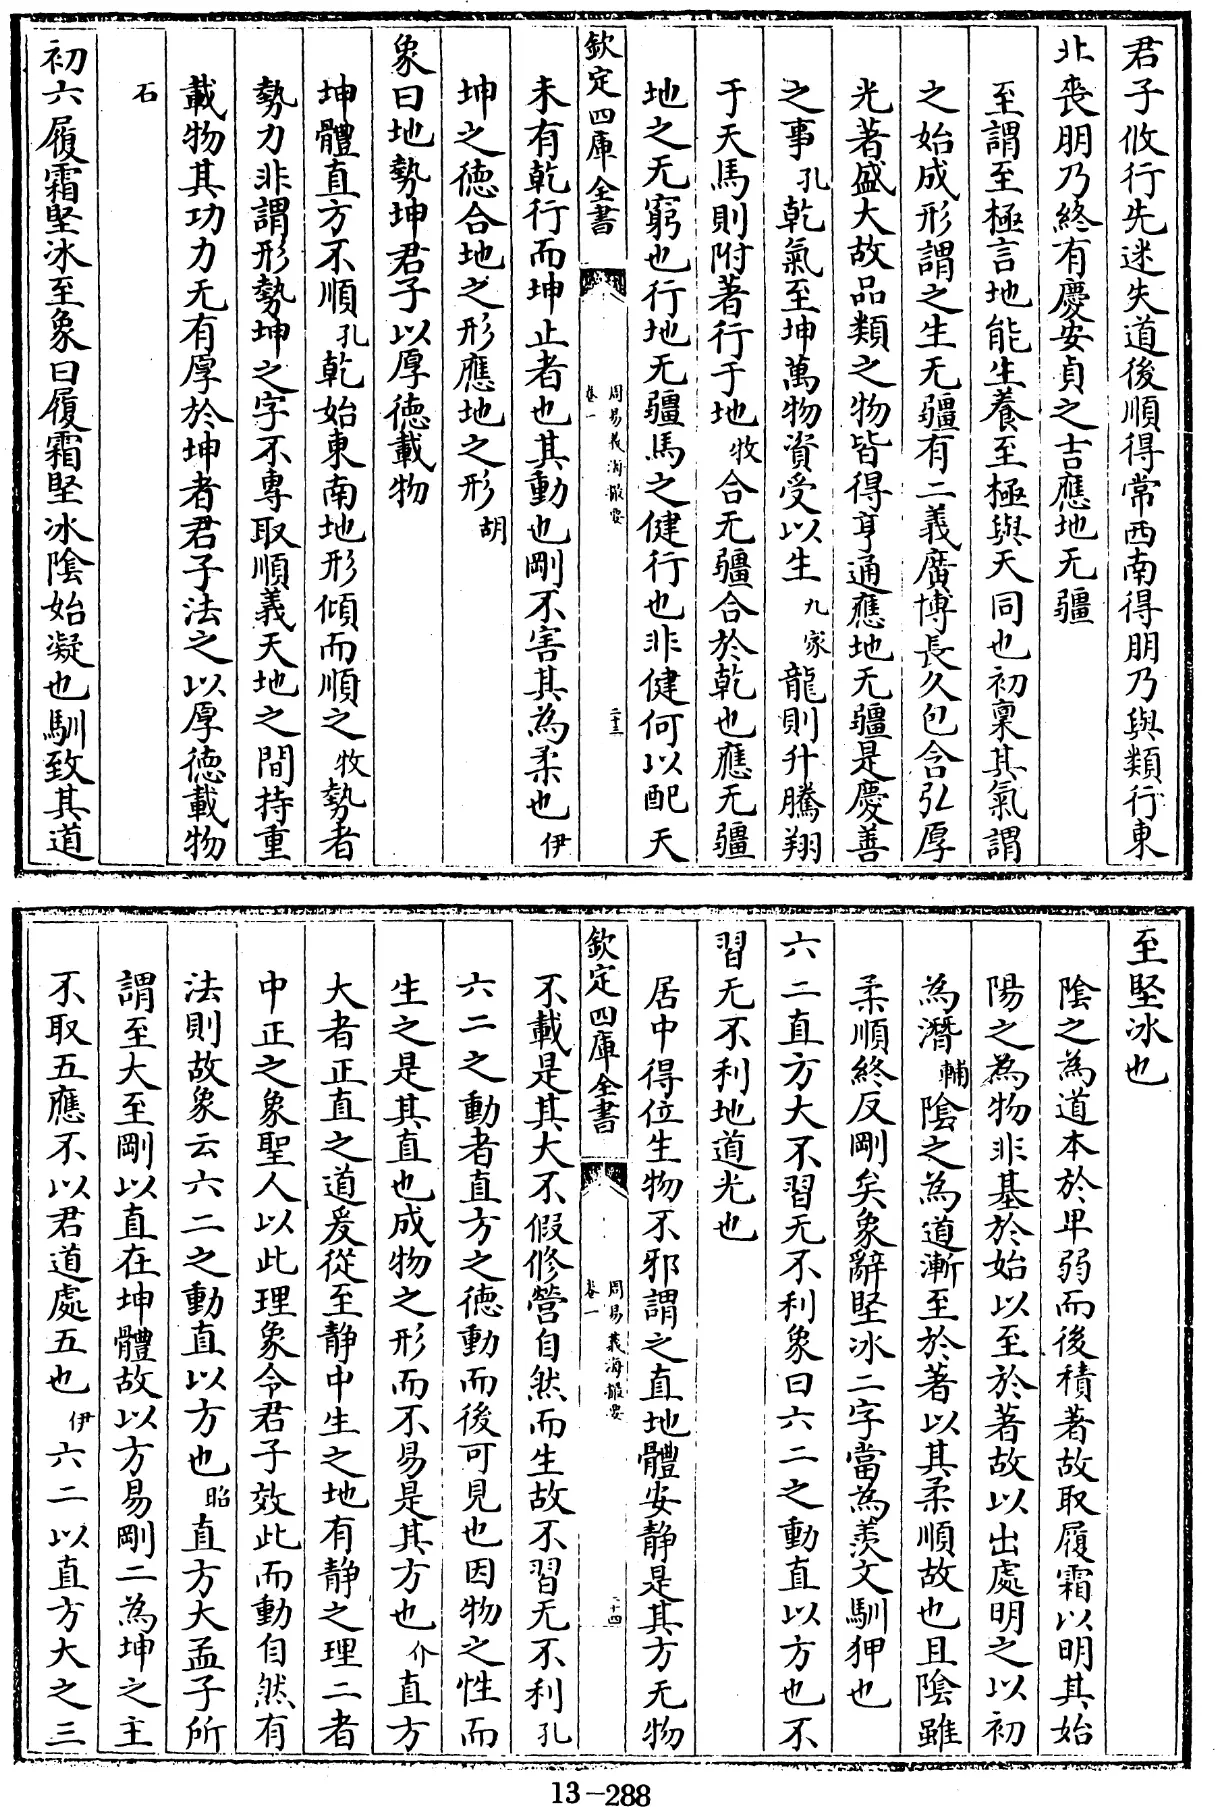 君子攸行先迷失道後順得常西南得朋乃與類行東
北喪朋乃終有慶安貞之吉應地无疆
至謂至極言地能生養至極與天同也初稟其氣謂
之始成形謂之生无疆有二義廣博長久包含弘厚
光著盛大故品類之物皆得亨通應地无疆是慶善
之事孔乾氣至坤萬物資受以生九家龍則升騰翔
于天馬則附著行于地牧合无疆合於乾也應无疆
地之无窮也行地无疆馬之健行也非健何以配天
欽定四庫全書 周易義海撮要 卷一 二十三
未有乾行而坤止者也其動也剛不害其為柔也伊
坤之德合地之形應地之形胡
象曰地勢坤君子以厚德載物
坤體直方不順孔乾始東南地形傾而順之牧勢者
勢力非謂形勢坤之字不專取順義天地之間持重
載物其功力无有厚於坤者君子法之以厚德載物
石
初六履霜堅冰至象曰履霜堅冰陰始凝也馴致其道
至堅冰也
陰之為道本於卑弱而後積著故取履霜以明其始
陽之為物非基於始以至於著故以出處明之以初
為潛輔陰之為道漸至於著以其柔順故也且陰雖
柔順終反剛矣象辭堅冰二字當為羨文馴狎也
六二直方大不習无不利象曰六二之動直以方也不
習无不利地道光也
居中得位生物不邪謂之直地體安靜是其方无物
欽定四庫全書 周易義海撮要 卷一 二十四
不載是其大不假修營自然而生故不習无不利孔
六二之動者直方之德動而後可見也因物之性而
生之是其直也成物之形而不易是其方也介直方
大者正直之道爰從至靜中生之地有靜之理二者
中正之象聖人以此理象令君子效此而動自然有
法則故象云六二之動直以方也昭直方大孟子所
謂至大至剛以直在坤體故以方易剛二為坤之主
不取五應不以君道處五也伊六二以直方大之三
13-288